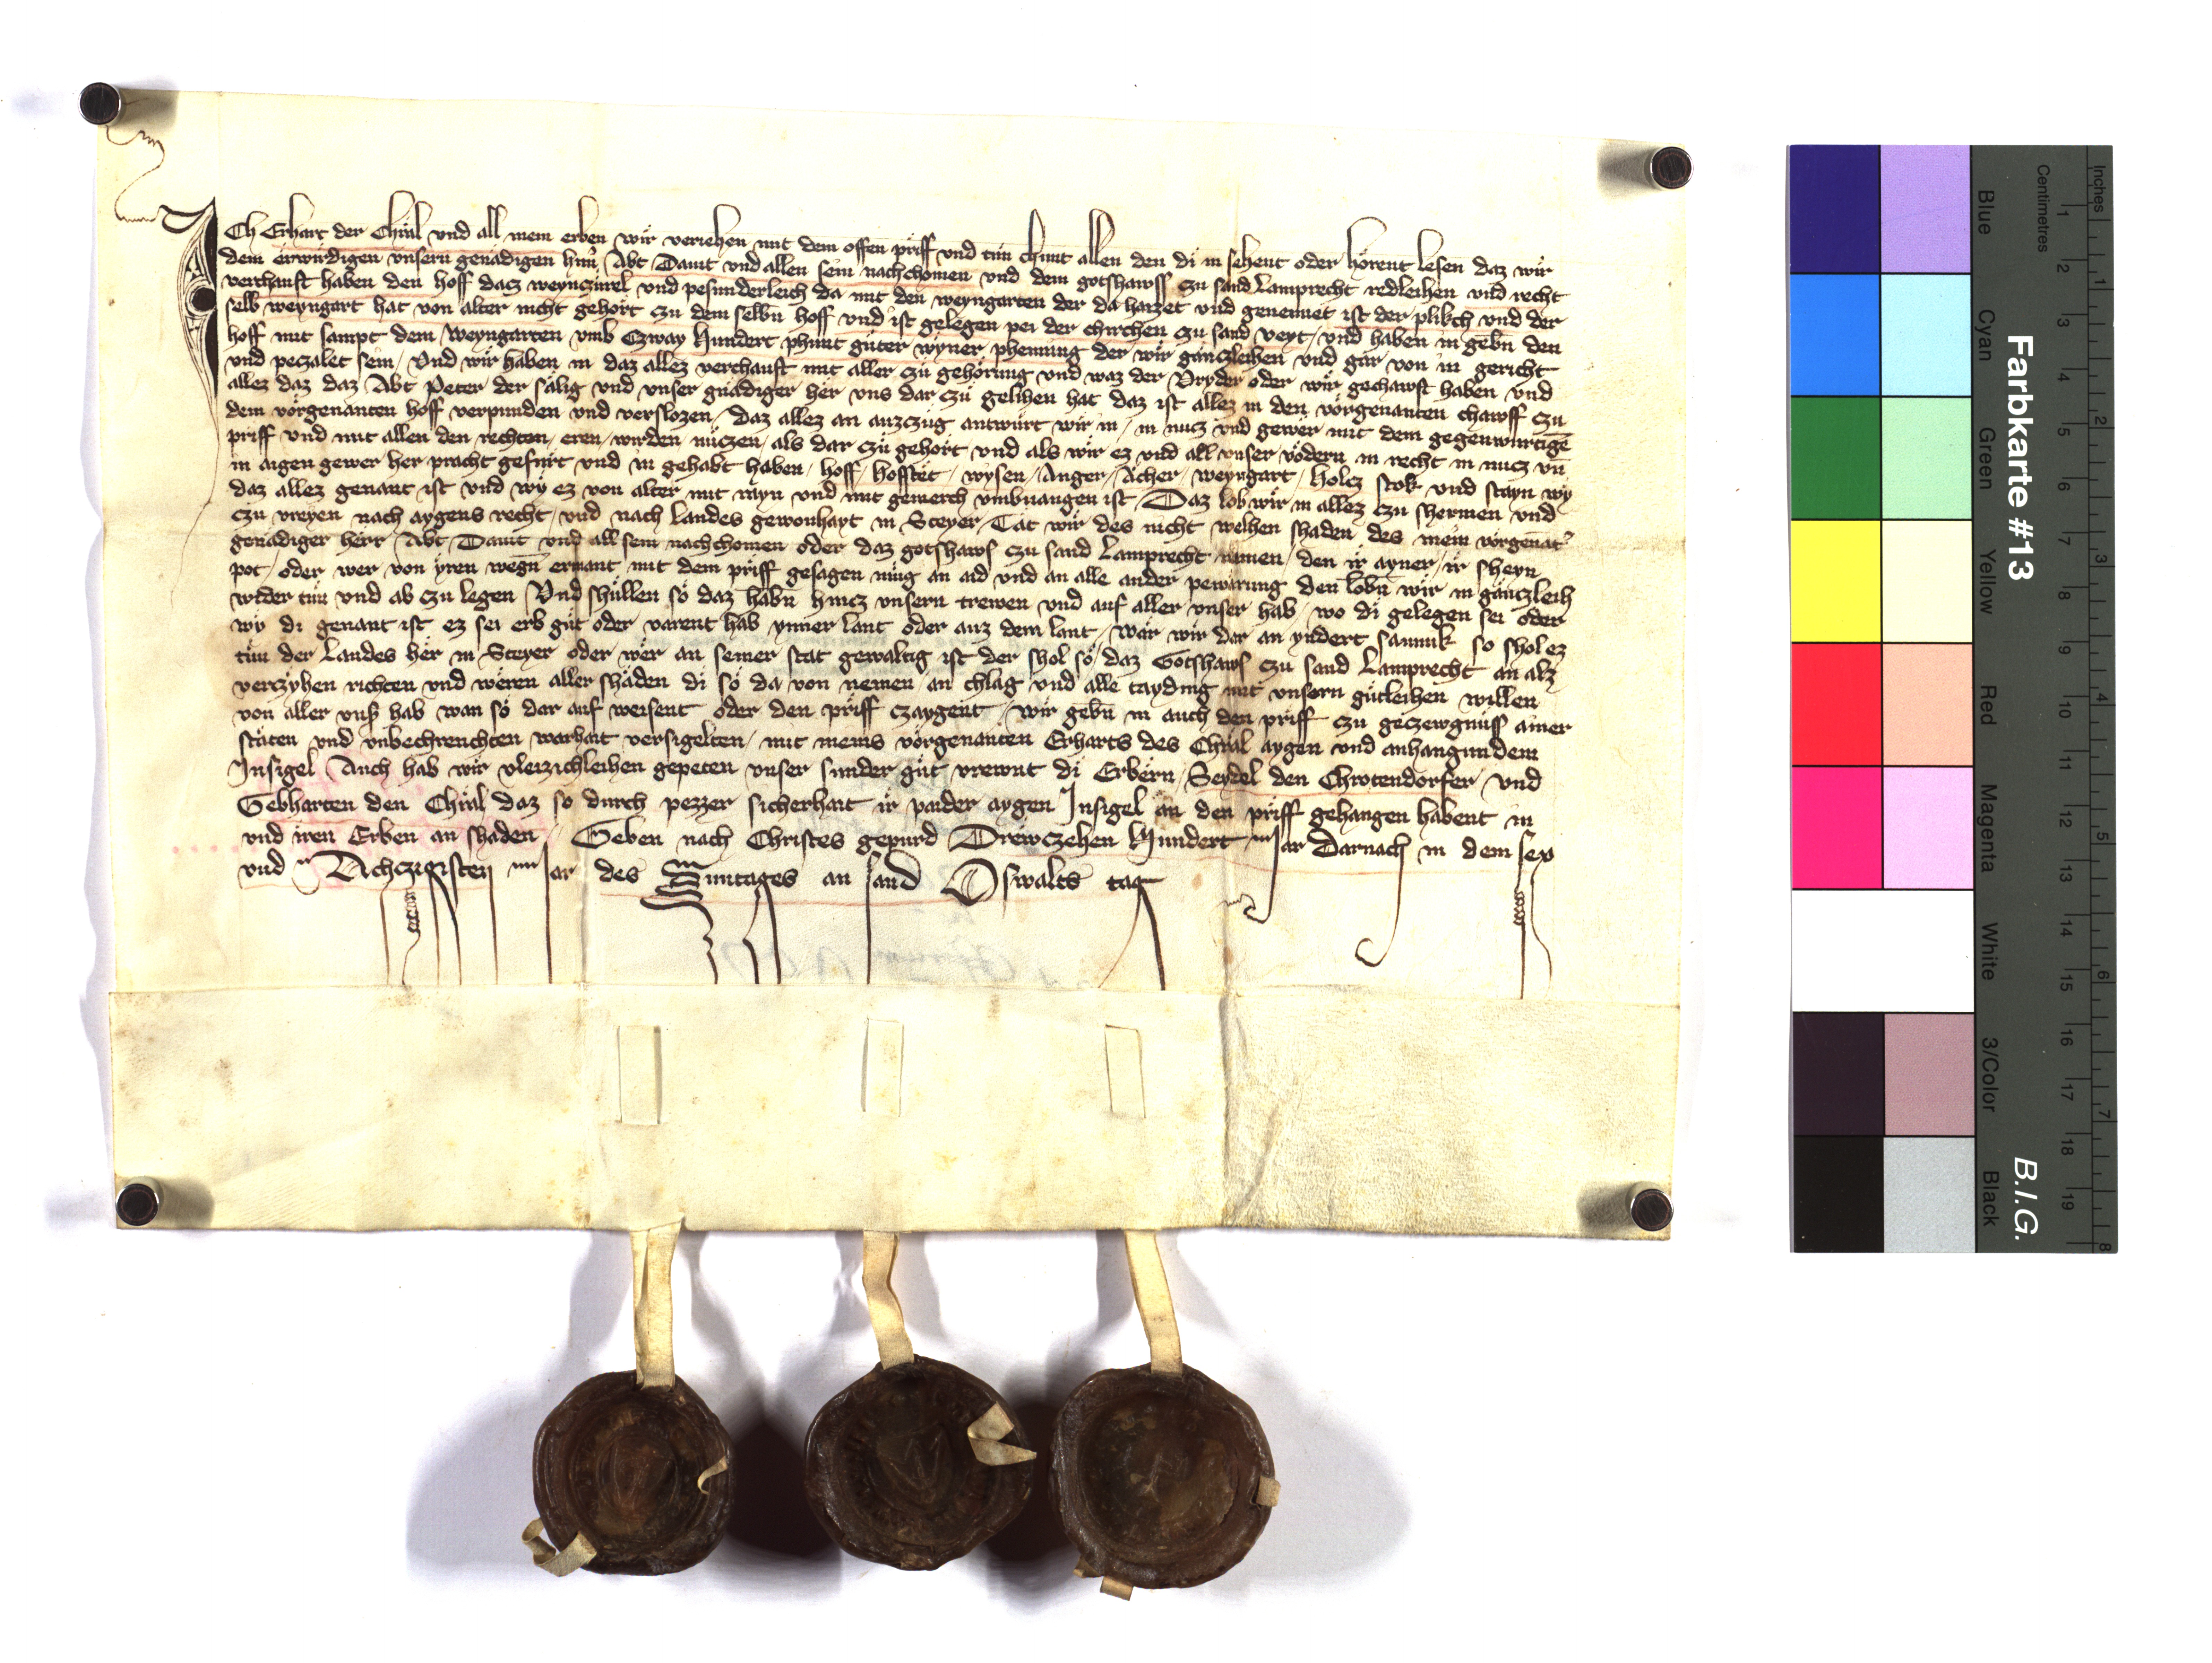 ICh Erhart der Chräl vnd all mein erben wir veriehen mit dem offen priff vnd tün chunt allen den di in sehent oder hörent lesen daz wir
dem erwirdigen vnsern genädigen hñ Abt Dauit vnd allen sein nachchomen vnd dem gotshawss czu sand Lamprecht redleihen vnd recht
verchauft haben den hoff dacz weynczürel vnd pesunderleich da mit den weyngarten der da haizzet vnd genennet ist der plikch vnd der
selb weyngart hat von alter nicht gehört czu dem selbñ hoff vnd ist gelegen pei der chirchen czu sand veyt / vnd haben in gebñ den
hoff mit sampt dem weyngarten vmb Czway Hundert phunt güter wyner phenning der wir gänczleihen vnd gar von in gericht
vnd peczalet sein / Vnd wir haben in daz allez verchauft mit aller czü gehörung vnd waz der Vryder oder wir gechawft haben vnd
allez daz daz Abt Peter der sälig vnd vnser gnädiger her vns dar czü gelihen hat daz ist allez in den vörgenanten chawff czu
dem vörgenanten hoff verpunden vnd verslozen / daz allez an auzczüg antwürt wir in / in nucz vnd gewer mit dem gegenwurtigē
priff vnd mit allen den rechten / eren / wirden nüczen / als dar czü gehört vnd als wir ez vnd all vnser vödern in recht in nucz vñ
in aigen gewer her pracht gefürt vnd in gehabt haben / hoff / hoffstet / wysen / Anger / Acher / weyngart / Holcz stok vnd stayn wy
daz allez genant ist vnd wy ez von alter mit rayn vnd mit gemerch vmbuangen ist / Daz lob wir in allez czu shermen vnd
czu vreyen nach aygens recht / vnd nach landes gewonhayt in Steyer / Tät wir des nicht welhen shaden des mein vörgenāt
genädiger herr Abt Dauit vnd all sein nachchomen oder daz gotshaws czu sand Lamprecht nemen / den ir ayner / ir sheyn
pot / oder wer von yren wegñ ermant mit dem priff gesagen müg an aid vnd an alle ander pewärung den lobñ wir in gänczleich
wider tün vnd ab czu legen Vnd shüllen sö daz habñ hincz vnsern trewen vnd auf aller vnser hab / wo di gelegen sei oder
wy di genant ist ez sei erb güt oder varent hab ynner lant oder auz dem lant / wär wir dar an yndert saumik so shol ez
tün der Landes her in Steyer oder wer an seiner stat gewaltig ist der shol sö / daz Gotshaws czu sand Lamprecht an alz
verczyhen richten vnd weren aller shäden di sö da von nemen / an chlag vnd alle tayding mit vnsern gütleihen willen
von aller vnsr hab wan sö dar auf weisent oder den priff czaygent / wir gebñ in auch den priff czu geczewgnüss ainer
stäten vnd vnbechrenchten warhait versigelten / mit meins vörgenanten Erharts des Chräl aygen vnd anhangundem
Insigel Auch hab wir vleizzichleihen gepeten vnser sunder güt vrewnt di Erbern / Seydel den Chrotendorfer / vnd
Gebharten den Chräl daz so durch pezzer sicherhait ir paider aygen Insigel an den priff gehangen habent in
vnd iren Erben an shaden / Geben nach Christes gepurd Drewczehen Hundert Jar Darnach in dem sex
vnd Achczigisten Jar des Suntages an sand Oswalts tag
Farbkarte #13
B.I.G.
Inches
Centimetres
1 2 3 4 5 6 7 8
1 2 3 4 5 6 7 8 9 10 11 12 13 14 15 16 17 18 19
Blue
Cyan
Green
Yellow
Red
Magenta
White
3/Color
Black